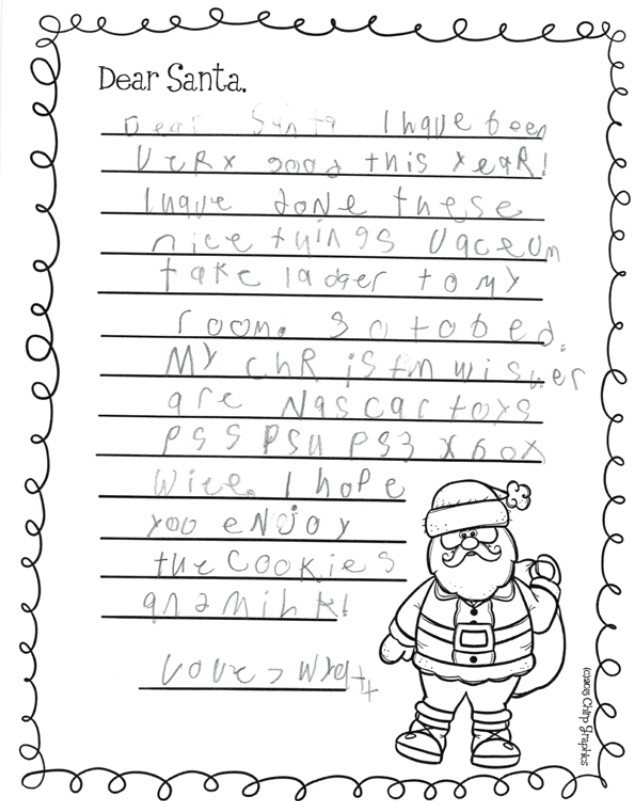 Dear Santa,
Dear Santa I have been
veRy good this yeaR!
I have done these
nice things vaceum
take ladger to my
room. go to bed.
My chRistm wisher
are Nascar toys
PS5 PS4 PS3 Xbox
wiee. I hope
yoo eNjoy
the cookies
and milk!
Love, Wyatt
(c)2015 Chirp Graphics